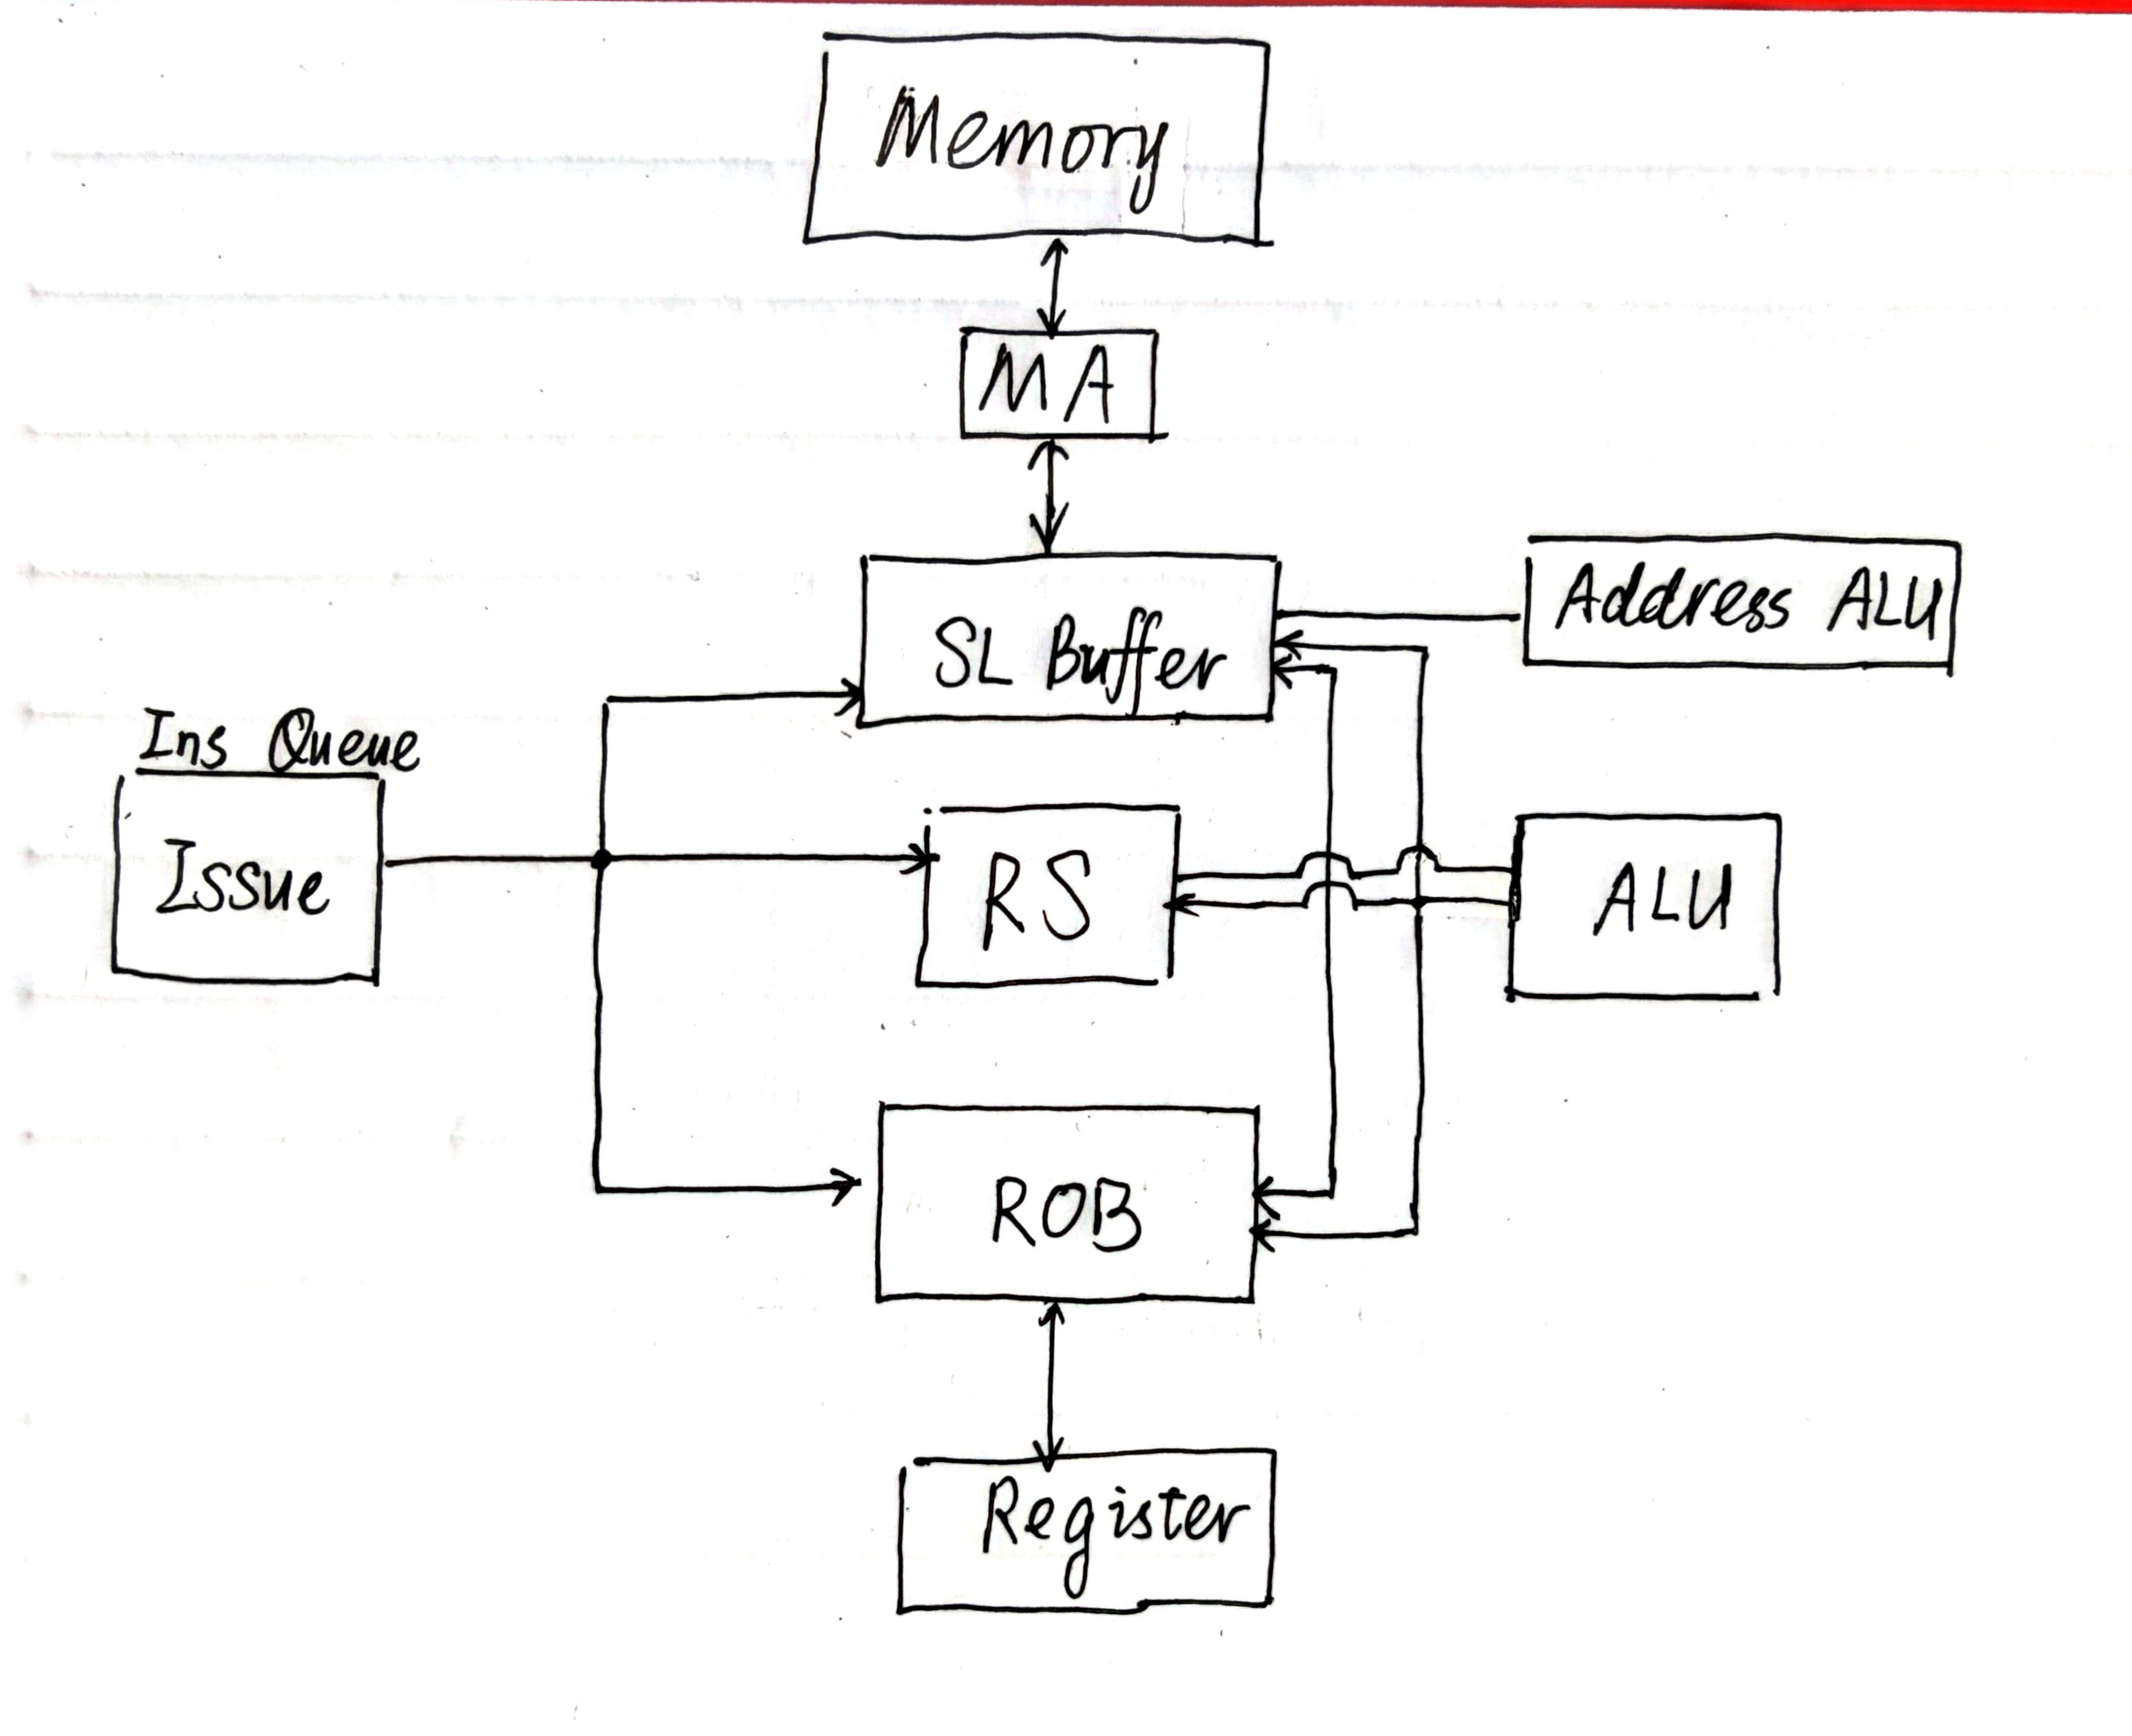 Memory
MA
SL Buffer
Address ALU
Ins Queue
Issue
RS
ALU
ROB
Register